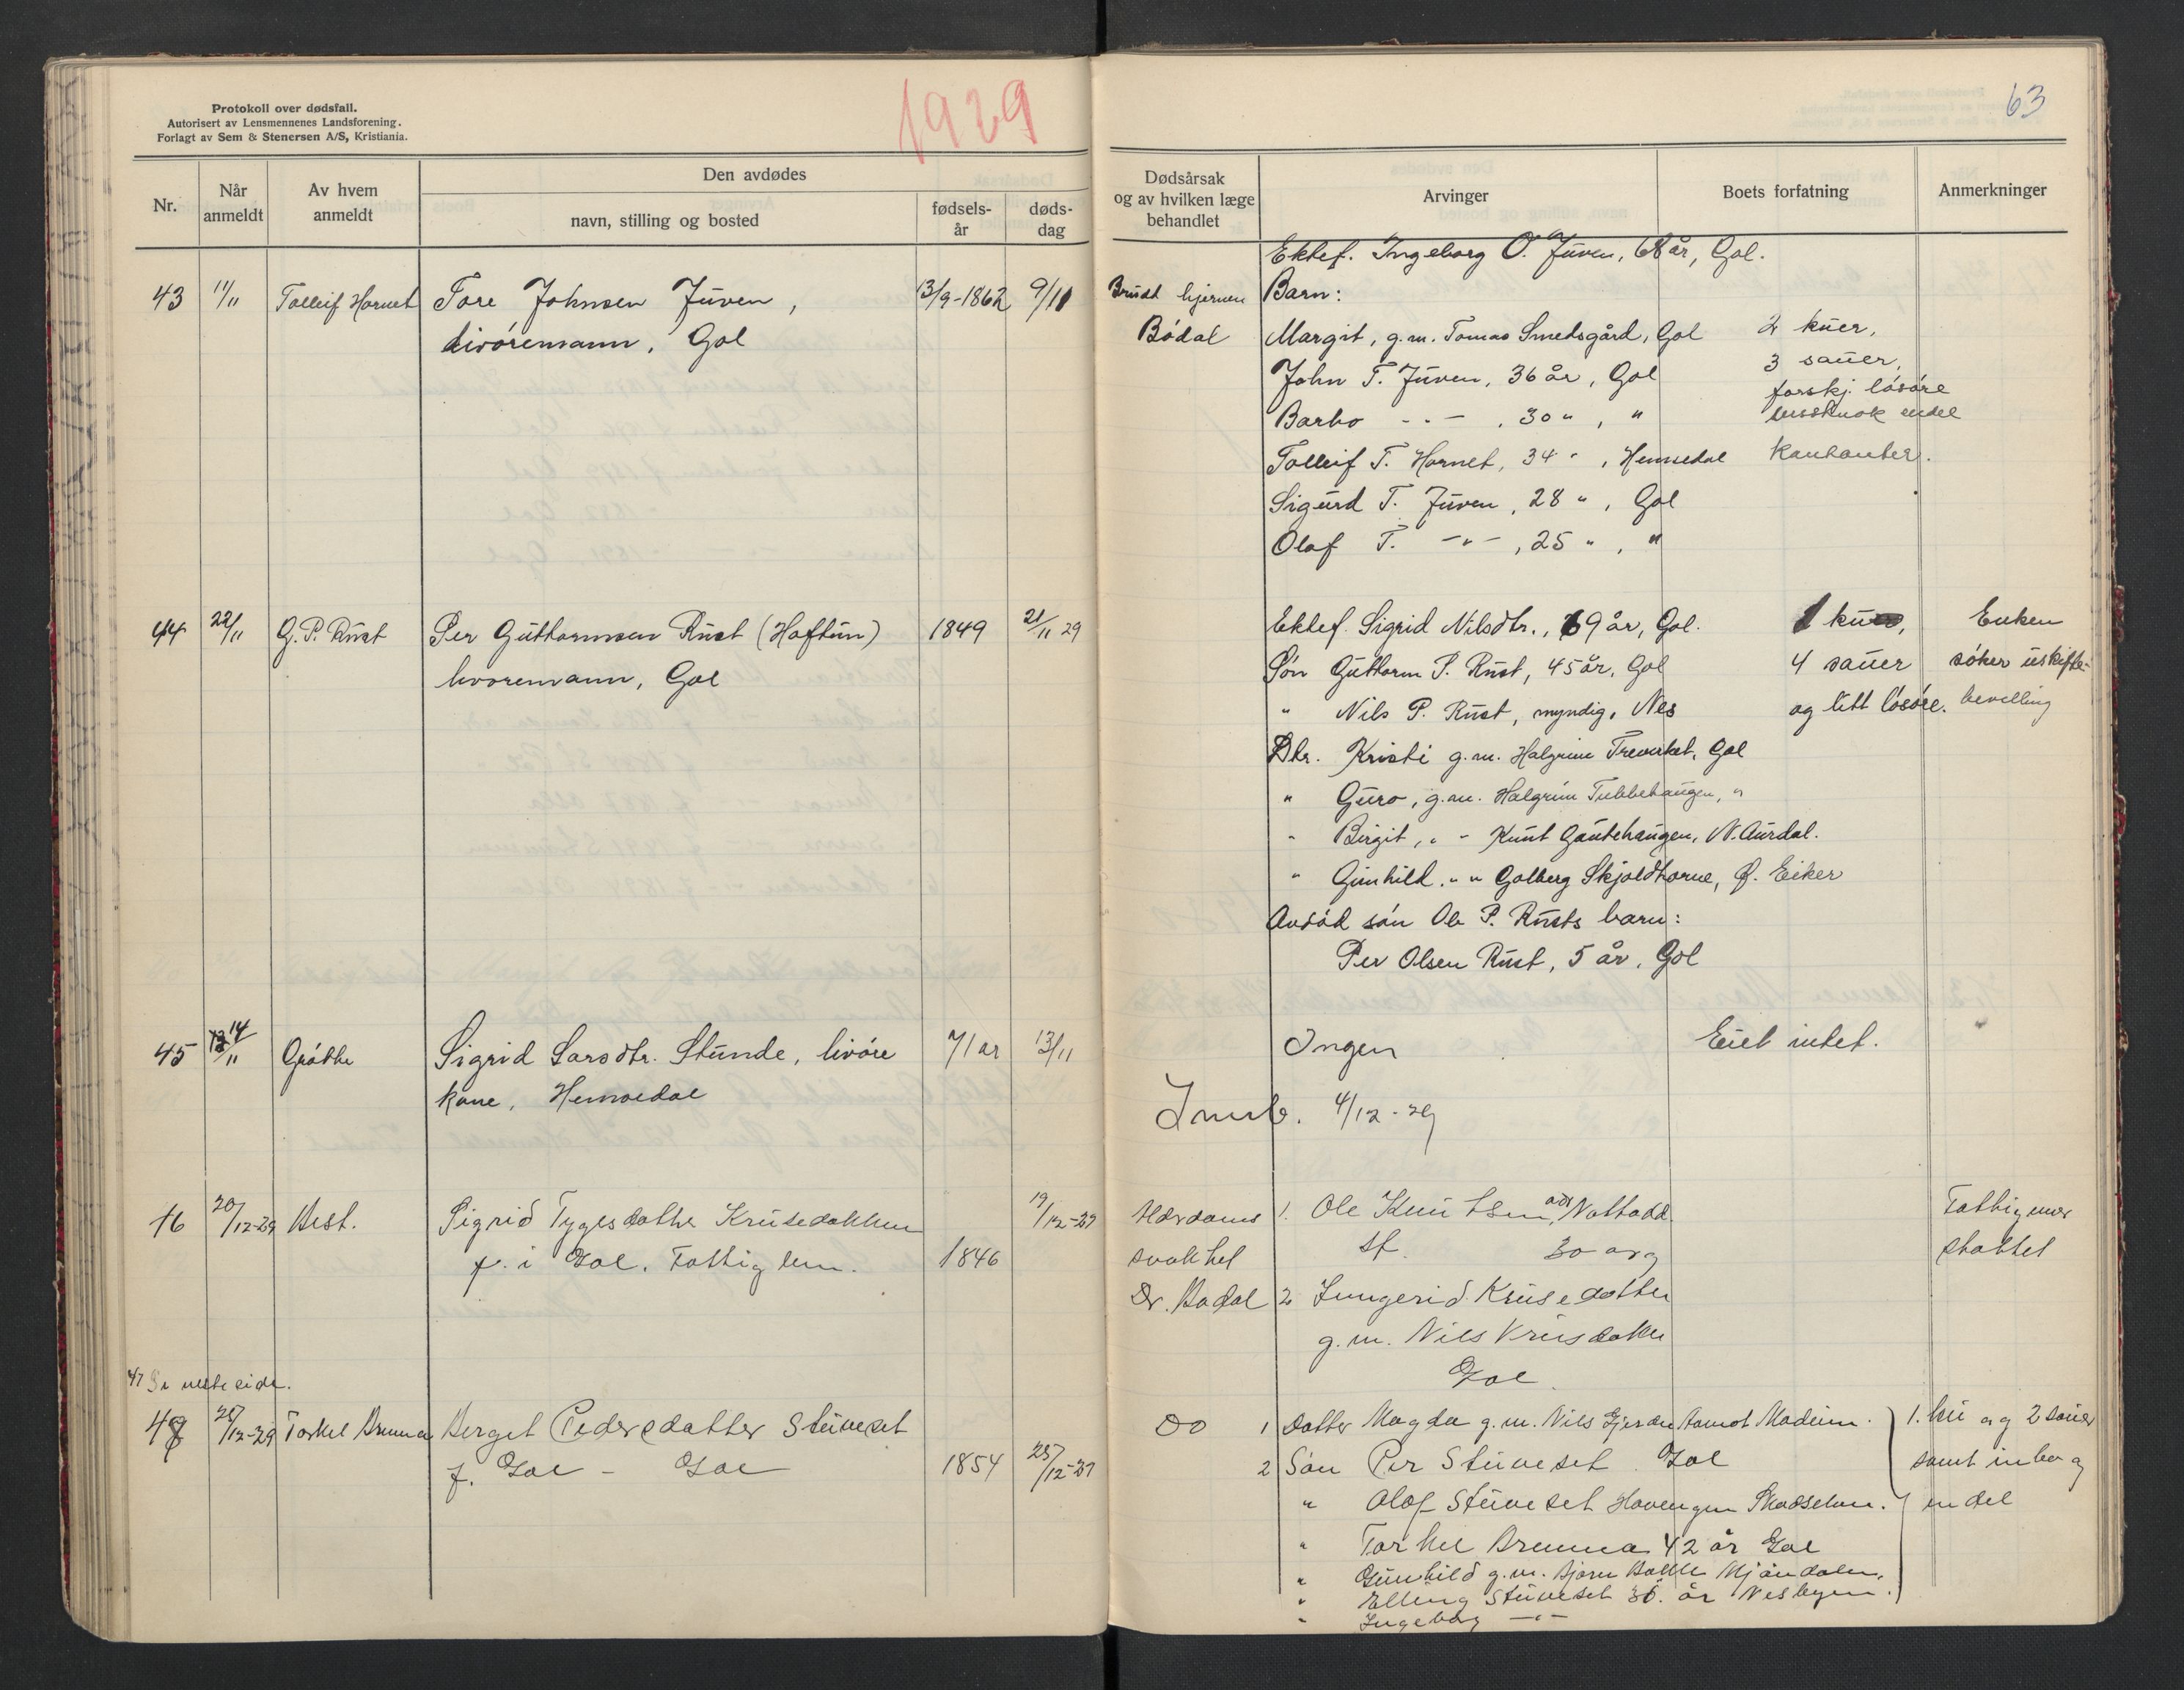 Protokoll over dødsfall.
Autorisert av Lensmennenes Landsforening.
Forlagt av Sem & Stenersen A/S, Kristiania.
1929
Nr.
Når anmeldt
Av hvem anmeldt
Den avdødes
navn, stilling og bosted
fødsels-år
døds-dag
43 11/11 Tolleif Hornet Tore Johnsen Juven, 13/9-1862 9/11
livöremann, Gol
44 22/11 G. P. Rust Per Guttormsen Rust (Haftun) 1849 21/11 29
livöremann, Gol
45 14/11 Gröthe Sigrid Larsdtr. Stunde, livöre 71 år 13/11
kone, Hemsedal
46 20/12-29 Best. Sigrid Tygesdatter Krusedokken 19/12-29
f. i Gol. Fattiglem. 1846
47 Se neste side.
48 28/12-29 Torkel Brenna Berget Pedersdatter Stuveset
f. Gol - Gol 1854 25/12-29
63
Dødsårsak
og av hvilken læge
behandlet
Arvinger
Boets forfatning
Anmerkninger
Ektef. Ingeborg O. Juven, 68 år, Gol.
Barn:
Bödal Margit, g.m. Tomas Smedsgård, Gol 2 kuer,
John T. Juven, 36 år, Gol 3 sauer,
forskj. lösöre
Barbo -"- , 30 " , "
Tolleif T. Hornet, 34 " , Hemsedal kontanter.
Sigurd T. Juven, 28 " , Gol
Olaf T. -"- , 25 " , "
Ektef. Sigrid Nilsdtr., 69 år, Gol. 1 ku, Enken
Sön Guttorm P. Rust, 45 år, Gol 4 sauer söker uskifte-
" Nils P. Rust, myndig, Nes og litt lösöre. bevilling
Dtr. Kristi g.m. Halgrim Trevirket, Gol
" Guro, g.m. Halgrim Tubbehaugen, "
" Birgit, " " Knut Gautehaugen, N. Aurdal.
" Gunhild, " " Golberg Skjoldtorne, Ø. Eiker
Avdöd sön Ole P. Rusts barn:
Per Olsen Rust, 5 år, Gol
Ingen Eiet intet.
Innb. 4/12-29
Alderdoms 1. Ole Knutsen, adr Nattodd Fattigunder
svakhet st. 30 årg stöttet
Dr. Bødal 2 Jungerid Krusedotten
g.m. Nils Krusdokken
Gol
Do 1 Datter Magda g.m. Nils Gjerde Aamot Modum. 1. ku og 2 sauer
2 Sön Per Stuveset Gol samt inbo og
" Olof Stuveset Hovengen Skodselven. en del
" Torkel Brenna 42 år Gol
" Gunhild g.m. Bjørn Bakke Mjöndalen.
" Elling Stuveset 36. år Nesbyen.
" Ingeborg -"-